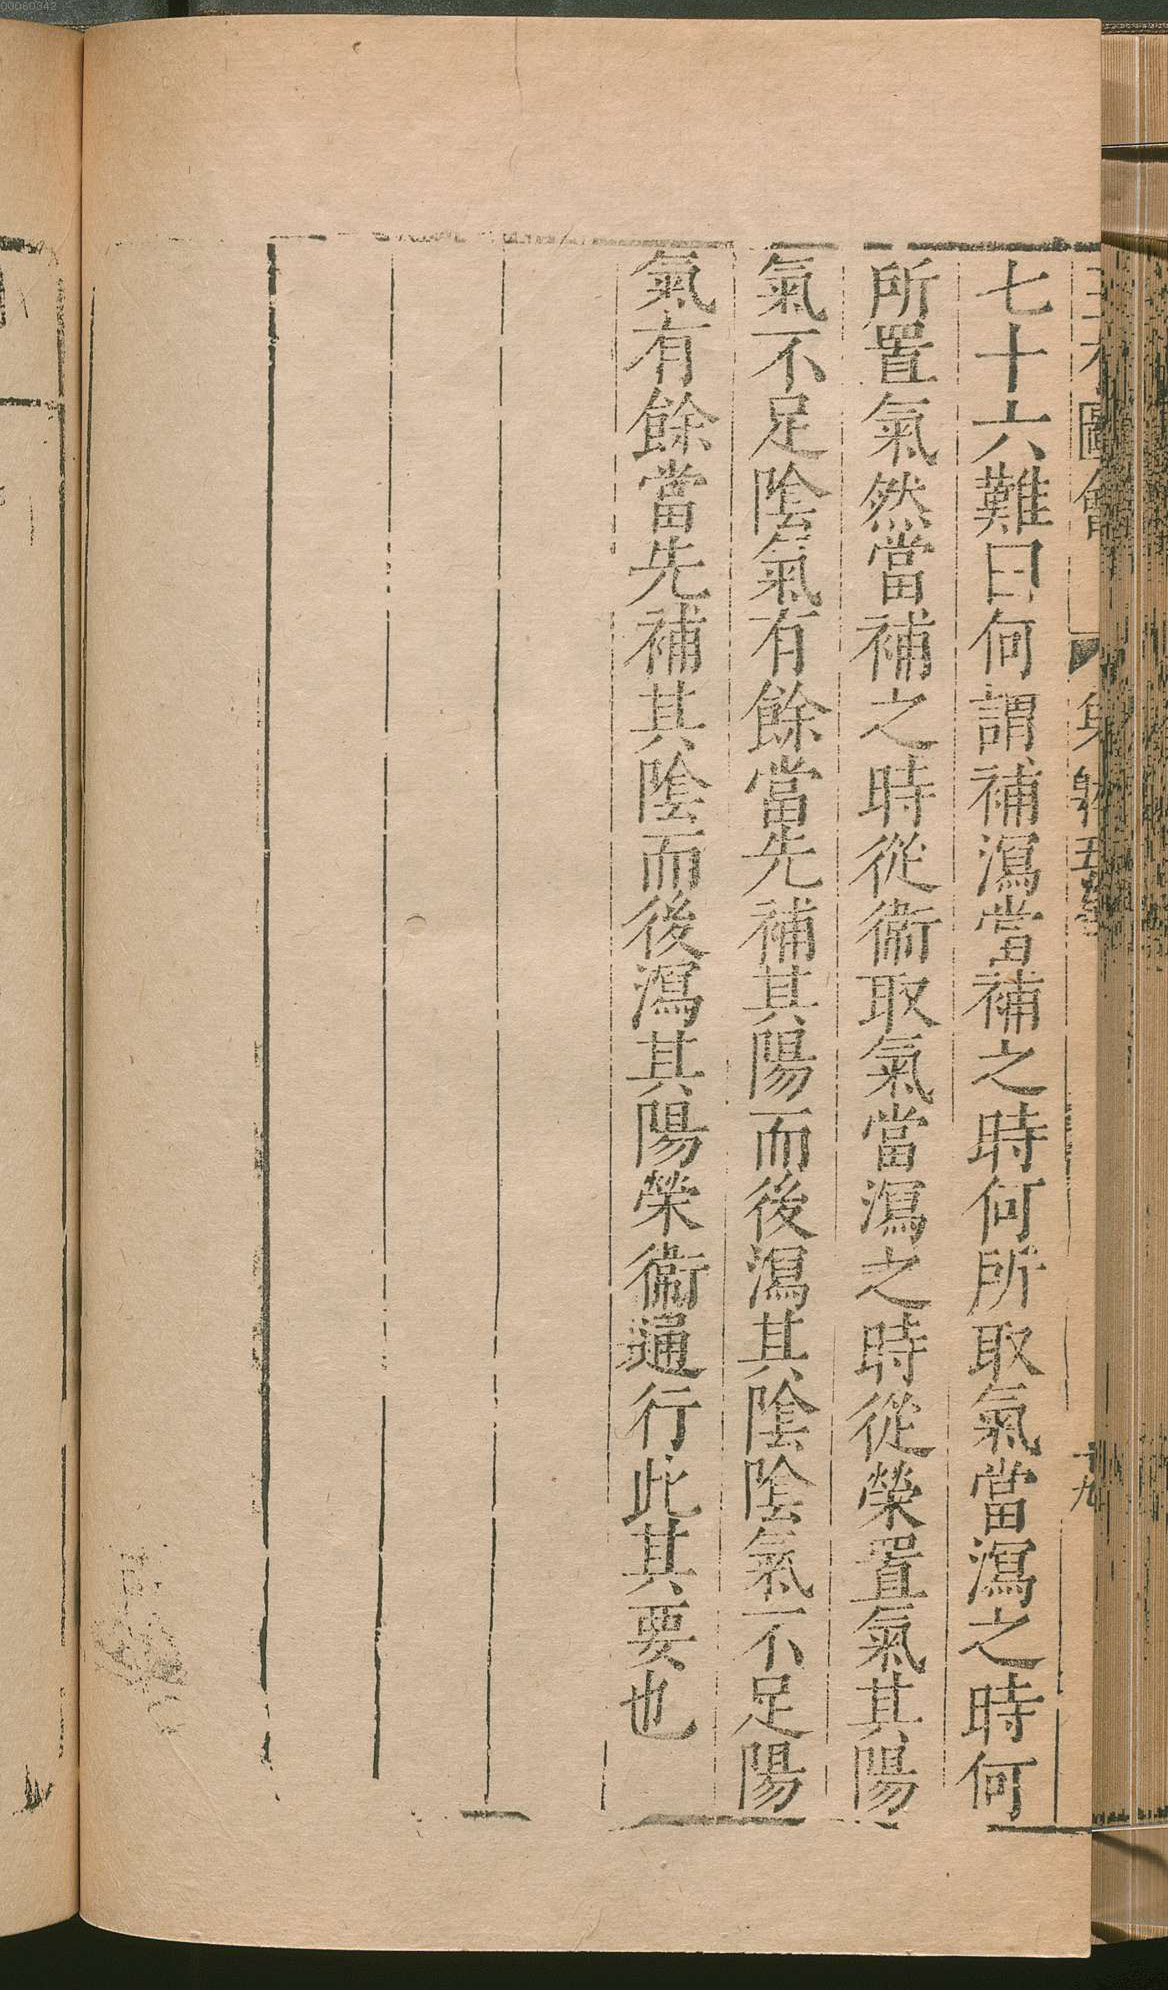 七十六難曰何謂補瀉當補之時何所取氣當瀉之時何
所置氣然當補之時從衞取氣當瀉之時從榮置氣其陽
氣不足陰氣有餘當先補其陽而後瀉其陰陰氣不足陽
氣有餘當先補其陰而後瀉其陽榮衞通行此其要也
00080342